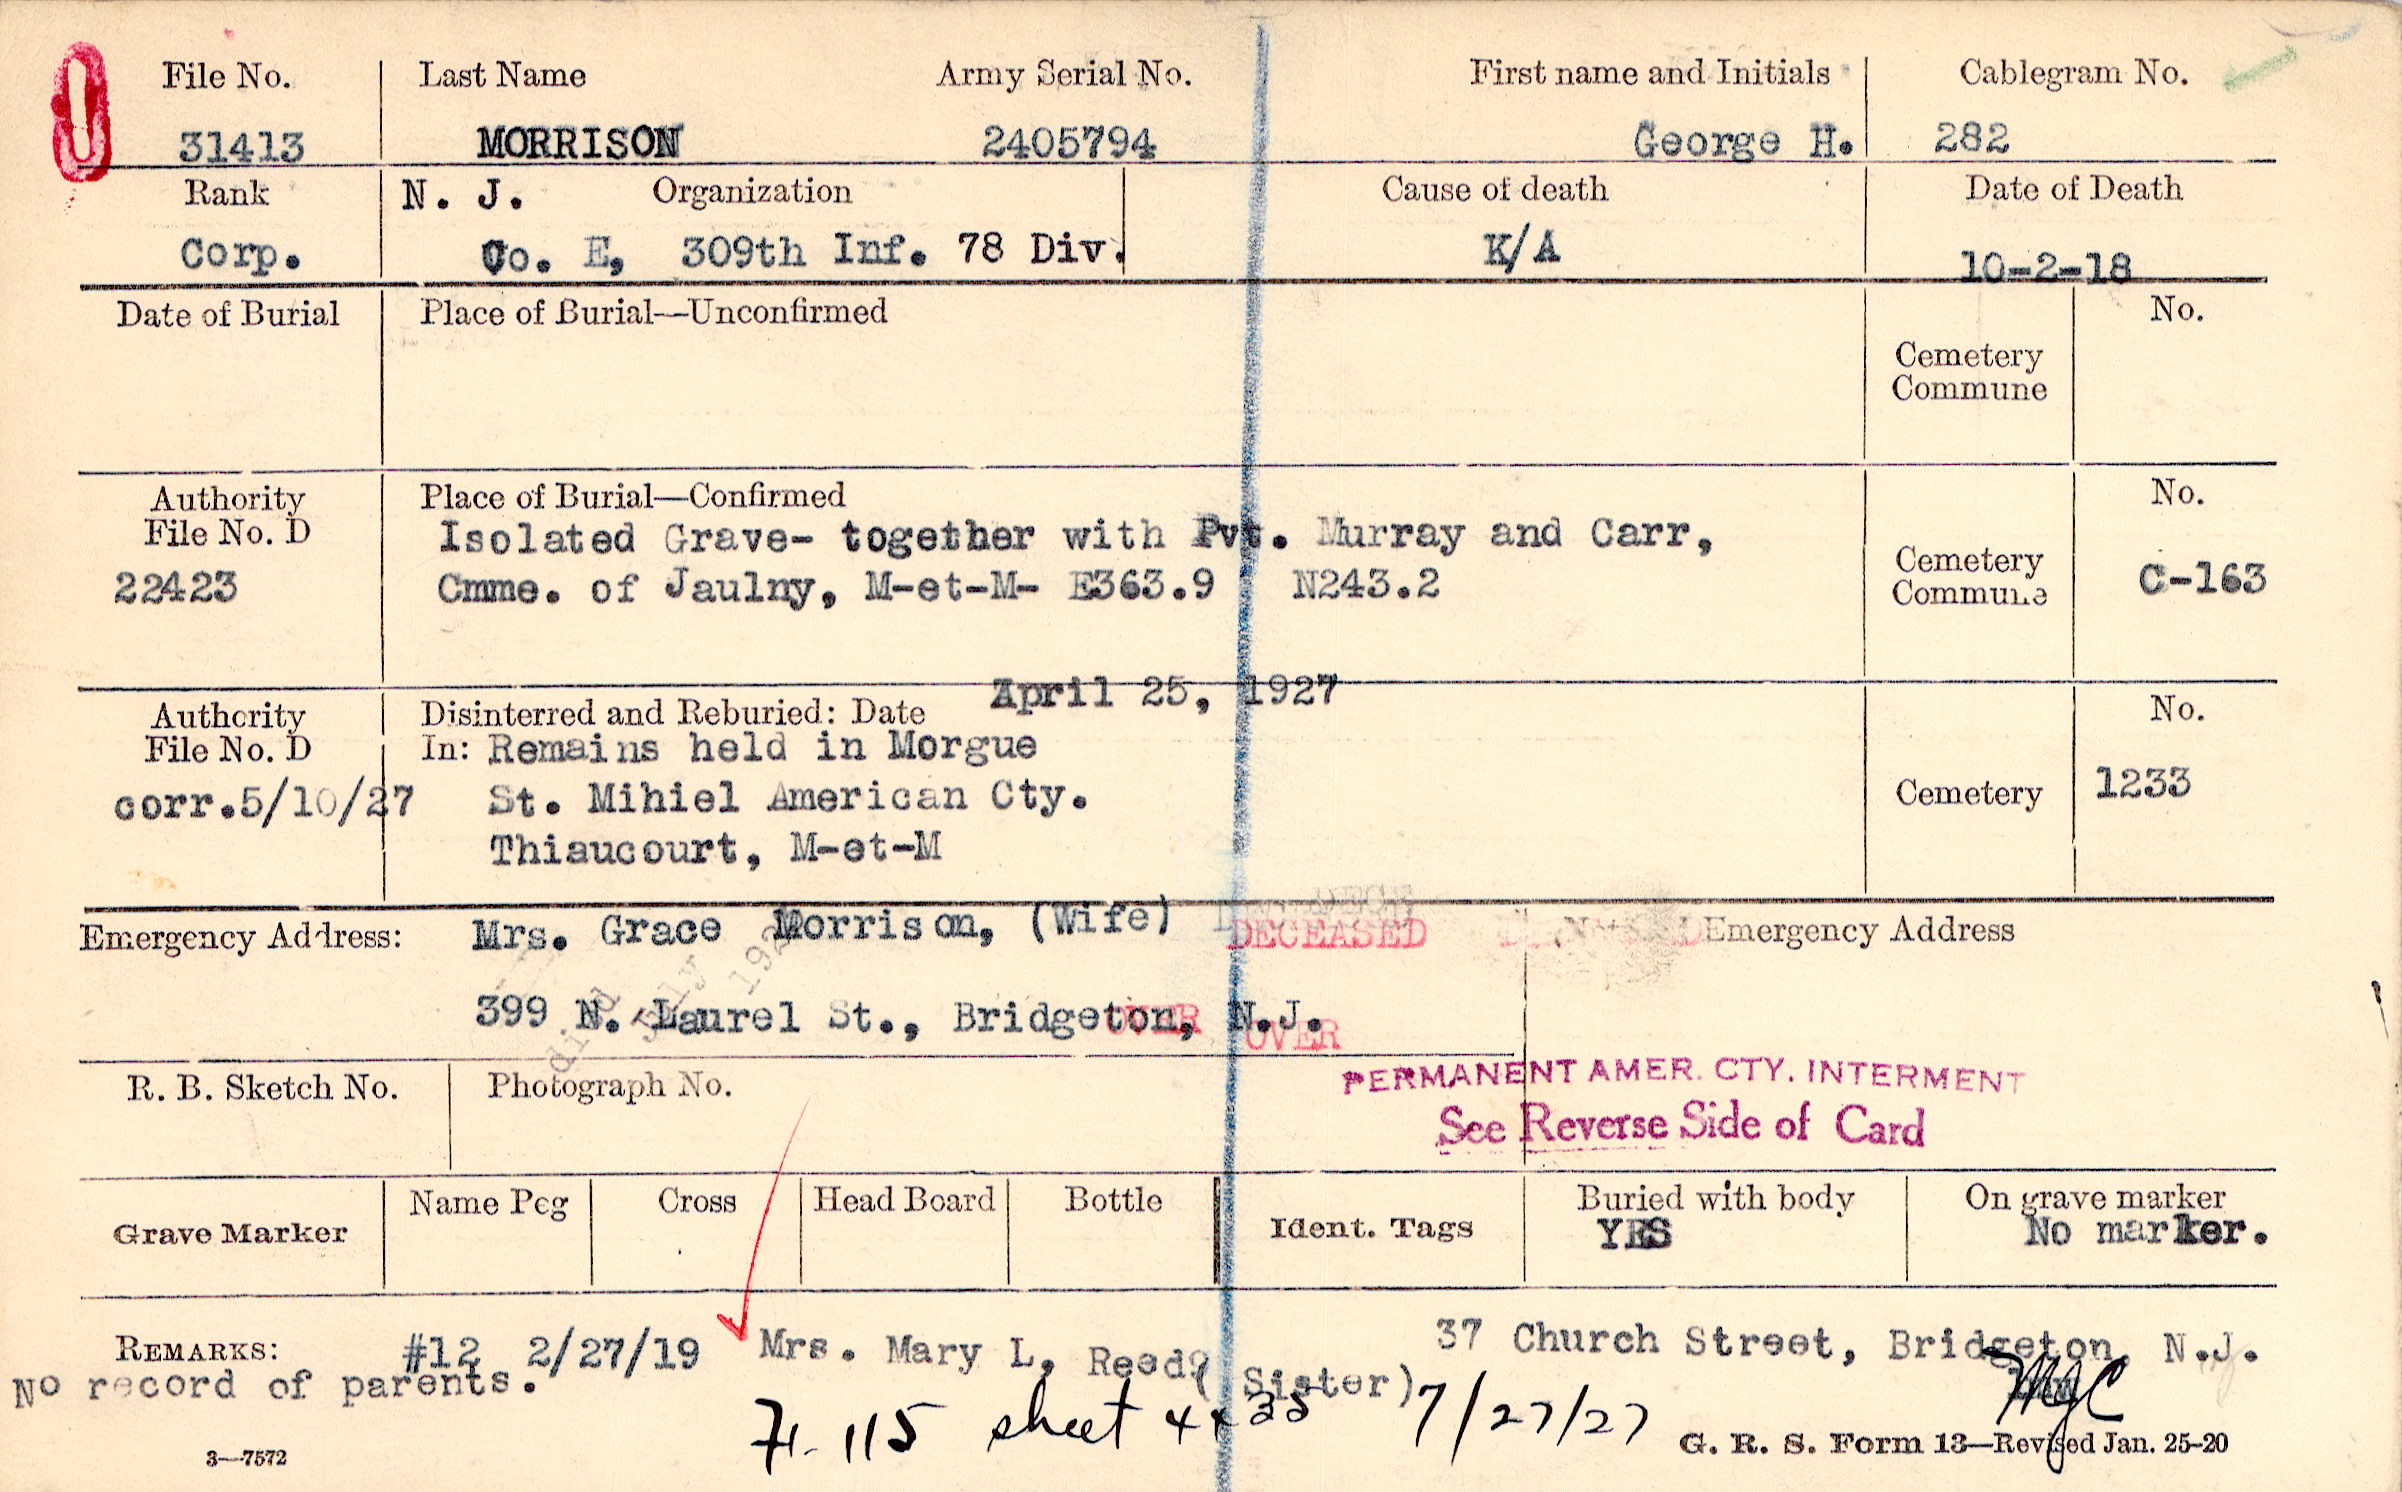 File No. Last Name Army Serial No. First name and Initials Cablegram No.
31413 MORRISON 2405794 George H. 282
Rank N. J. Organization Cause of death Date of Death
Corp. Co. E, 309th Inf. 78 Div. K/A 10-2-18
Date of Burial Place of Burial—Unconfirmed No.
Cemetery
Commune
Authority Place of Burial—Confirmed No.
File No. D Isolated Grave- together with Pvt. Murray and Carr,
22423 Cmme. of Jaulny, M-et-M- E363.9 N243.2 Cemetery C-163
Commune
April 25, 1927
Authority Disinterred and Reburied: Date No.
File No. D In: Remains held in Morgue
corr.5/10/27 St. Mihiel American Cty. Cemetery 1233
Thiaucourt, M-et-M
Emergency Address: Mrs. Grace Morrison, (Wife) DECEASED Emergency Address
399 N. Laurel St., Bridgeton, N.J.
died July
OVER OVER
R. B. Sketch No. Photograph No.
PERMANENT AMER. CTY. INTERMENT
See Reverse Side of Card
Grave Marker Name Peg Cross Head Board Bottle Ident. Tags Buried with body On grave marker
YES No marker.
REMARKS: #12 2/27/19 Mrs. Mary L, Reed( Sister) 37 Church Street, Bridgeton, N.J.
No record of parents.
115 sheet 7/27/27 MJC
3—7572 G. R. S. Form 13—Revised Jan. 25-20